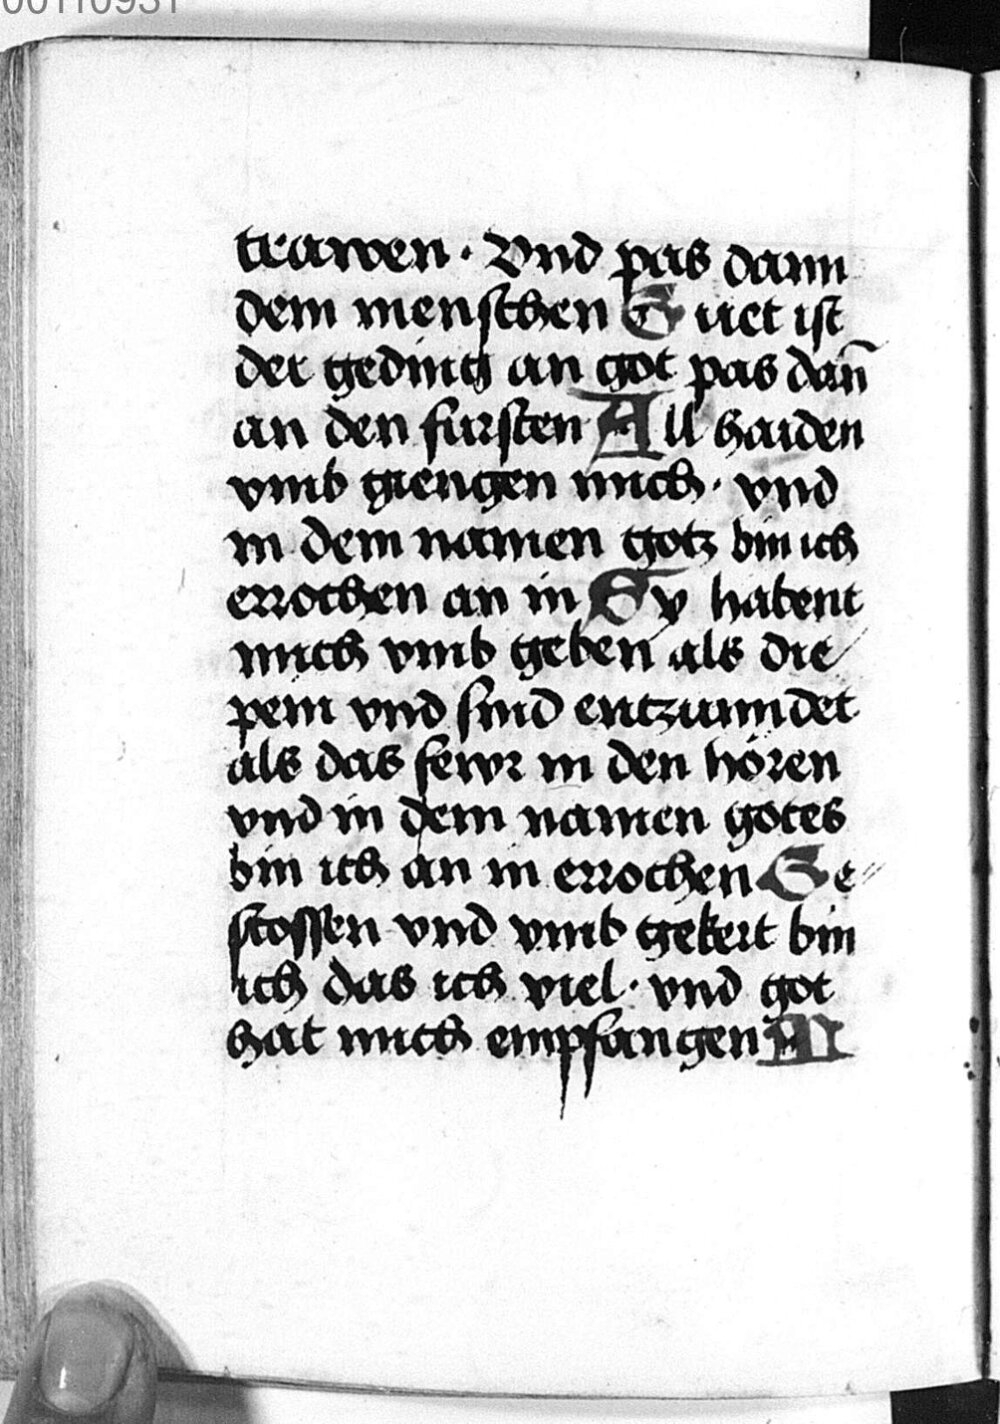 00110931
trawen · Vnd pas dann
dem menschen Guet ist
der geding an got pas dañ
an den fursten All haiden
vmb giengen mich · vnd
in dem namen gotz bin ich
errochen an in Sy habent
mich vmb geben als die
pein vnd sind entzunndet
als das fewr in den hören
vnd in dem namen gotes
bin ich an in errochen Ge
stossen vnd vmb gekert bin
ich das ich viel · vnd got
hat mich empfangen M